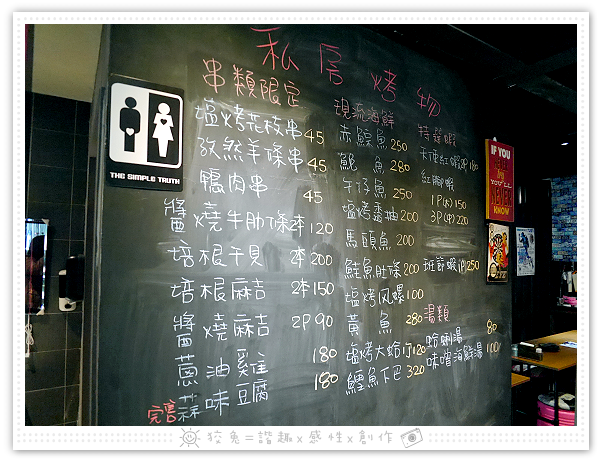 私房烤物
串類限定
塩烤花枝串 45
孜然羊條串 45
鴨肉串 45
醬燒牛肋條 2本 120
培根干貝 2本 200
培根麻吉 2本 150
醬燒麻吉 2P 90
蔥油雞 180
蒜味豆腐 180
完售
現流海鮮
赤鯮魚 250
鮸魚 280
午仔魚 250
塩烤透抽 200
馬頭魚 200
鮭魚肚條 200
塩烤风螺 100
黃魚 280
塩烤大蛤 120
鱈魚下巴 320
特選蝦
天使紅蝦 2P 180
紅腳蝦
1P(大) 150
3P(中) 220
班節蝦 1P 250
湯類
蛤蜊湯 80
味噌海鮮湯 100
THE SIMPLE TRUTH
IF YOU
NEVER
KNOW
狡兔=諧趣x感性x創作